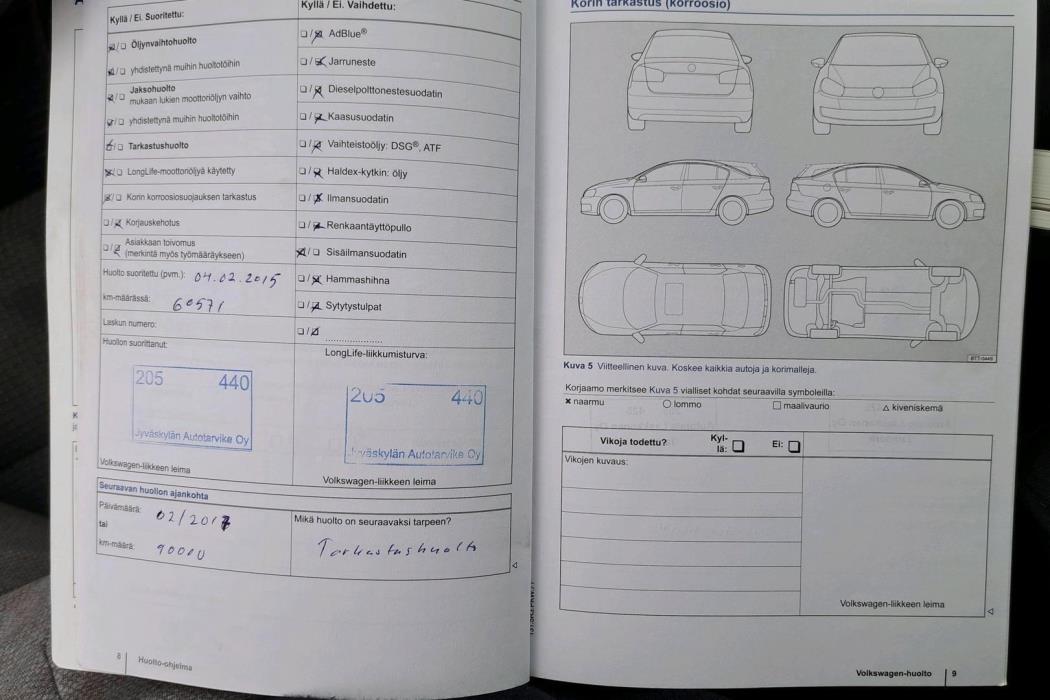 Kyllä / Ei. Suoritettu:
☒/☐ Öljynvaihtohuolto
☒/☐ yhdistettynä muihin huoltotöihin
☒/☐ Jaksohuolto
mukaan lukien moottoriöljyn vaihto
☒/☐ yhdistettynä muihin huoltotöihin
☒/☐ Tarkastushuolto
☒/☐ LongLife-moottoriöljyä käytetty
☒/☐ Korin korroosiosuojauksen tarkastus
☐/☒ Korjauskehotus
☐/☒ Asiakkaan toivomus
(merkintä myös työmääräykseen)
Huolto suoritettu (pvm.): 04.02.2015
km-määrässä: 60571
Laskun numero:
Huollon suorittanut:
205 440
Jyväskylän Autotarvike Oy
Volkswagen-liikkeen leima
Kyllä / Ei. Vaihdettu:
☐/☒ AdBlue®
☐/☒ Jarruneste
☐/☒ Dieselpolttonestesuodatin
☐/☒ Kaasusuodatin
☐/☒ Vaihteistoöljy: DSG®, ATF
☐/☒ Haldex-kytkin: öljy
☐/☒ Ilmansuodatin
☐/☒ Renkaantäyttöpullo
☒/☐ Sisäilmansuodatin
☐/☒ Hammashihna
☐/☒ Sytytystulpat
☐/☒ ....................
LongLife-liikkumisturva:
205 440
Jyväskylän Autotarvike Oy
Volkswagen-liikkeen leima
Seuraavan huollon ajankohta
Päivämäärä: 02/2017
tai
km-määrä: 90000
Mikä huolto on seuraavaksi tarpeen?
Tarkastushuolto
8 Huolto-ohjelma
Korin tarkastus (korroosio)
Kuva 5 Viitteellinen kuva. Koskee kaikkia autoja ja korimalleja.
Korjaamo merkitsee Kuva 5 vialliset kohdat seuraavilla symboleilla:
× naarmu ○ lommo □ maalivaurio △ kiveniskemä
Vikoja todettu? Kyl-
lä: ☐ Ei: ☐
Vikojen kuvaus:
Volkswagen-liikkeen leima
Volkswagen-huolto 9